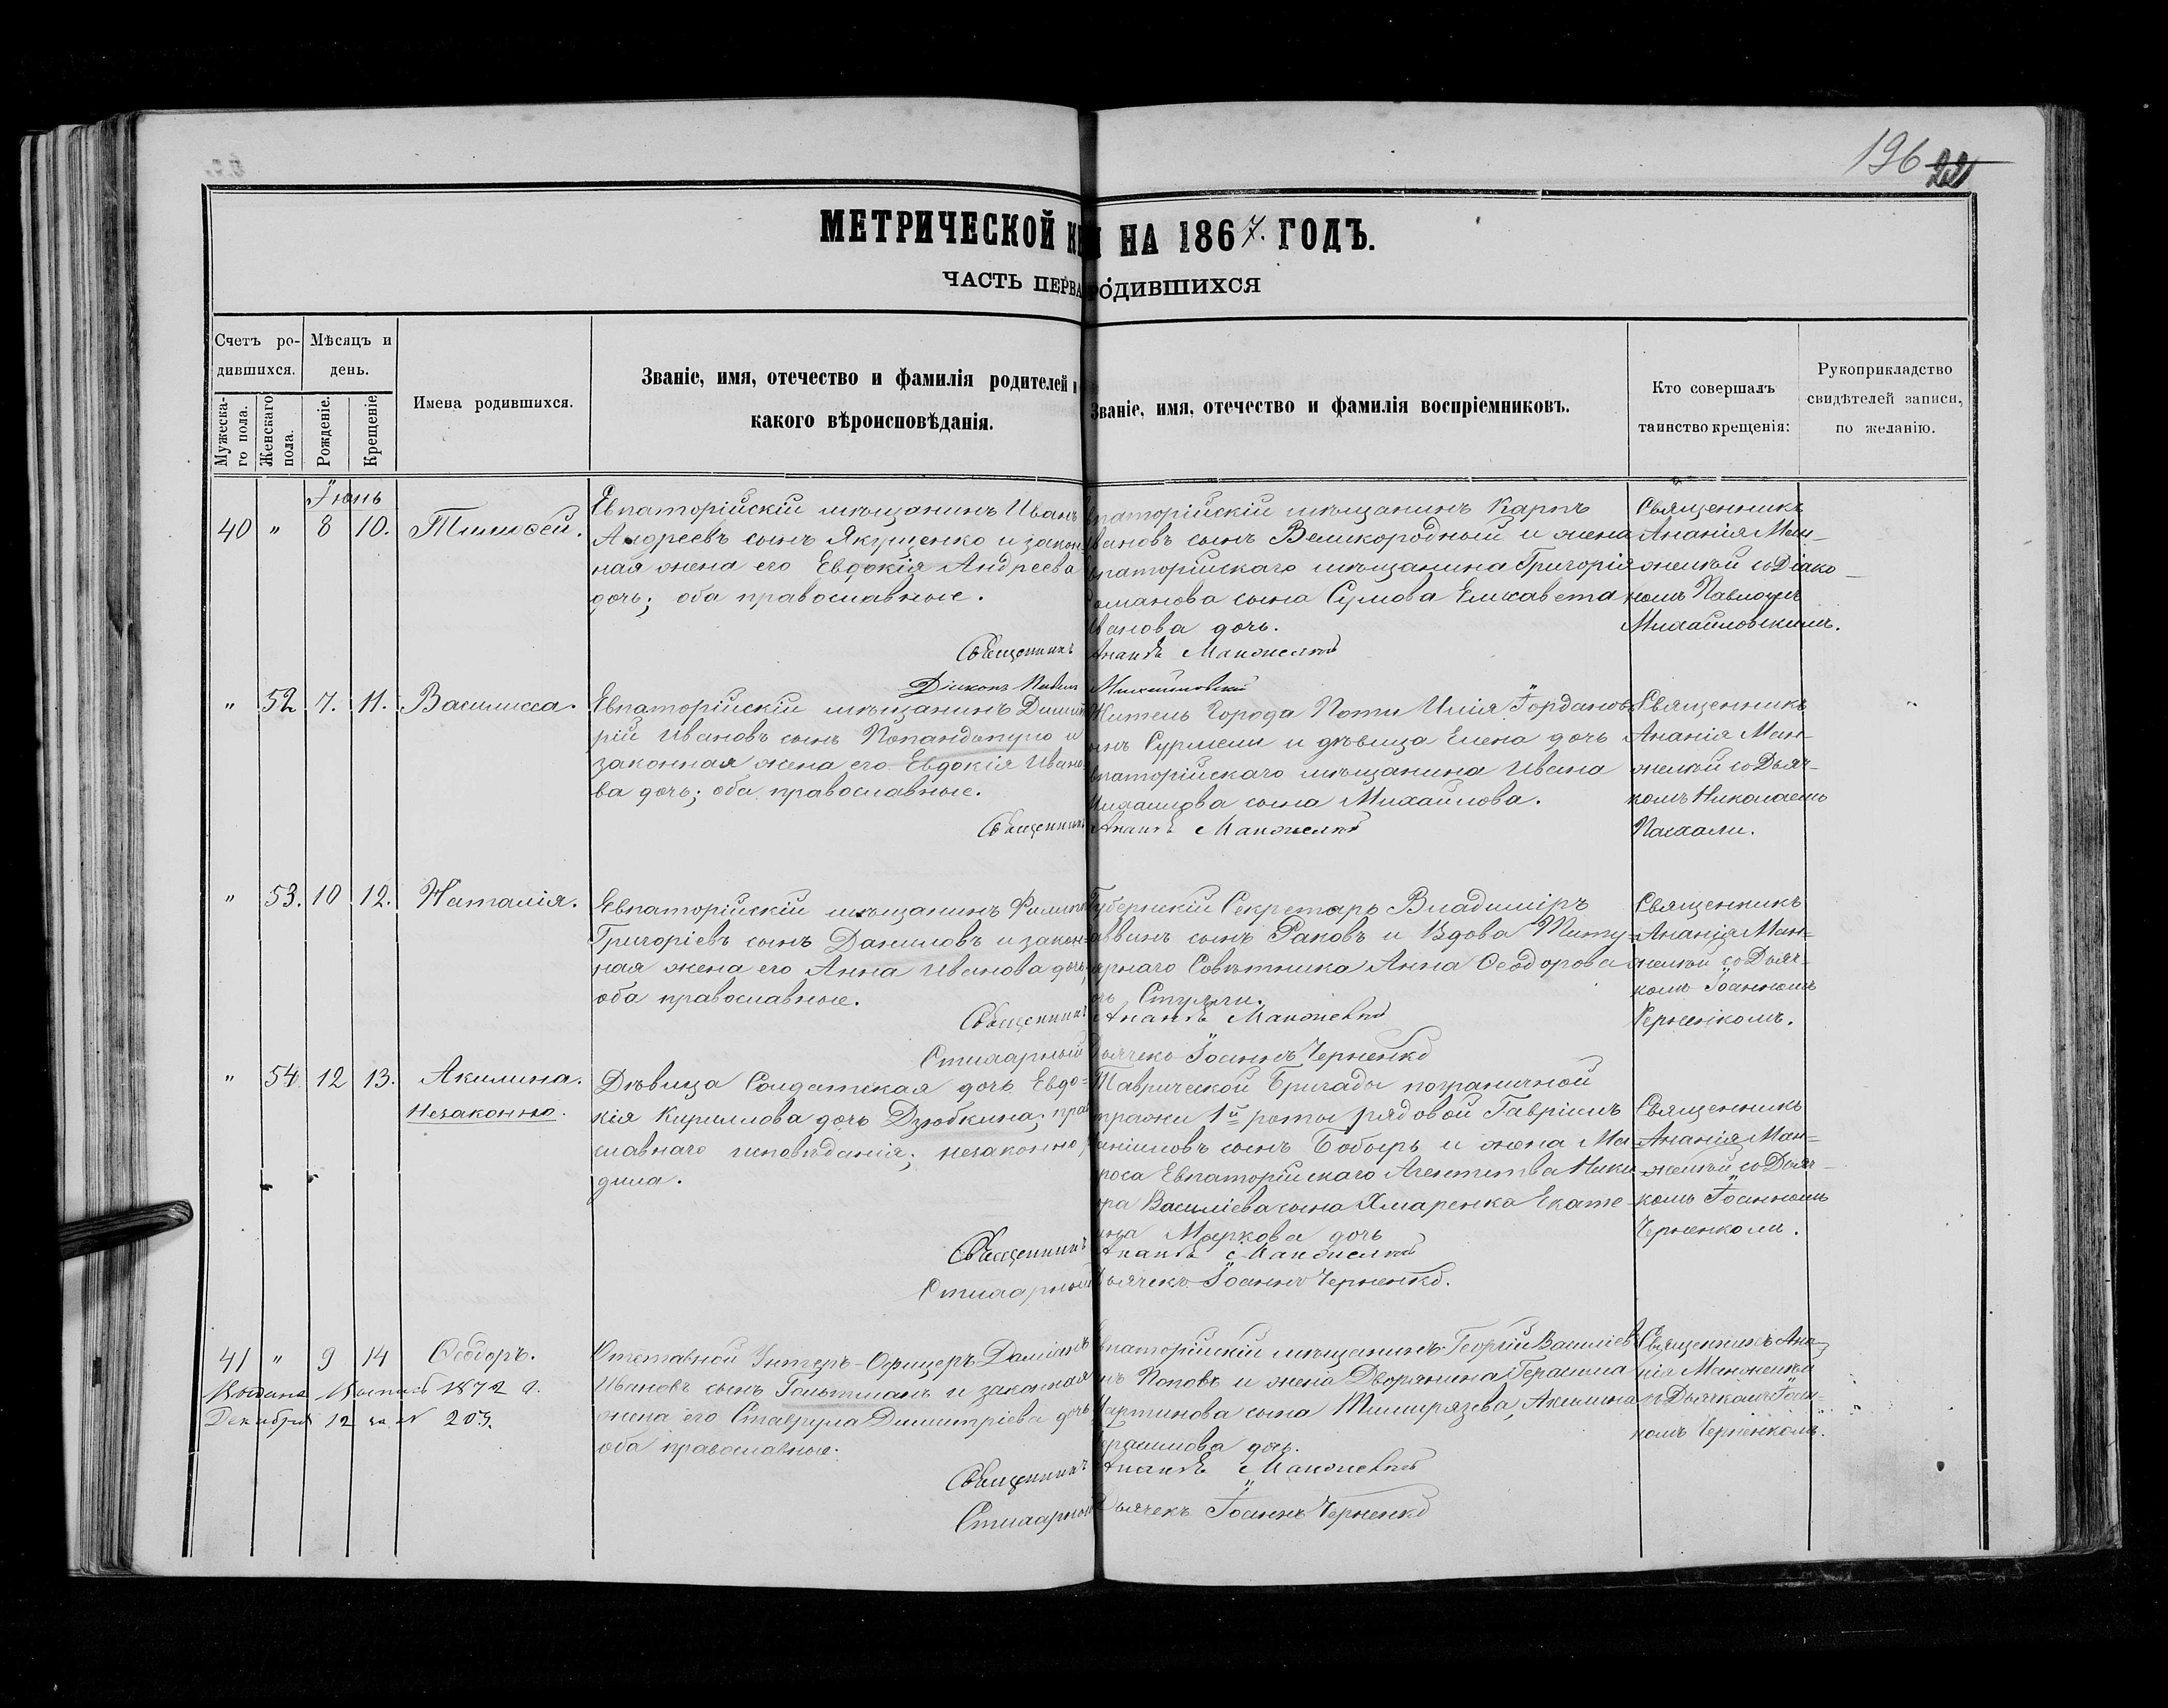 196 221
МЕТРИЧЕСКОЙ НА 1867. ГОДЪ.
ЧАСТЬ ПЕРВА РОДИВШИХСЯ
Счетъ ро-
дившихся.
Мужеска-
го пола.
Женскаго
пола.
Мѣсяцъ и
день.
Рожденіе.
Крещеніе
Имена родившихся.
Званіе, имя, отечество и фамилія родителей и
какого вѣроисповѣданія.
Званіе, имя, отечество и фамилія воспріемниковъ.
Кто совершалъ
таинство крещенія:
Рукоприкладство
свидѣтелей записи,
по желанію.
Іюнь
40 " 8 10. Тимоѳей.
Евпаторійскій мѣщанинъ Иванъ
Андреевъ сынъ Якущенко и закон-
ная жена его Евдокія Андреева
дочь; оба православные.
впаторійскій мѣщанинъ Карпъ
вановъ сынъ Великородный и жена
впаторійскаго мѣщанина Григорія
оманова сына Сумова Елисавета
ванова дочь.
Священникъ
Ананія Ман-
желѣй со Діако-
номъ Павломъ
Михайловскимъ.
Священникъ Ананія Манжелѣй
Діаконъ Павелъ Михайловскій
" 52 7. 11. Василисса.
Евпаторійскій мѣщанинъ Димит
рій Ивановъ сынъ Попандопуло и
законная жена его Евдокія Ивано
ва дочь; оба православные.
Житель Города Поти Илія Іордановъ
ынъ Сурмели и дѣвица Елена дочь
впаторійскаго мѣщанина Ивана
ихаилова сына Михайлова.
Священникъ
Ананія Ман-
желѣй со Дьяч-
комъ Николаемъ
Пасхали.
Священникъ Ананія Манжелѣй
" 53. 10 12. Наталія.
Евпаторійскій мѣщанинъ Филипъ
Григоріевъ сынъ Даниловъ и закон-
ная жена его Анна Иванова дочь
оба православные.
Губернскій Секретарь Владиміръ
аввинъ сынъ Раковъ и Вдова Титу-
ярнаго Совѣтника Анна Ѳеодорова
Священникъ
Ананія Ман-
желѣй со Дьяч-
комъ Іоанномъ
Черненкомъ.
Священникъ Ананія Манжелѣй
Стихарный Дьячекъ Іоаннъ Черненко
" 54 12 13. Акилина.
Незаконно.
Дѣвица Солдатская дочь Евдо-
кія Кириллова дочь Дзюбкина; пра
славнаго исповѣданія; незаконно
дила.
Таврической Бригады пограничной
тражи 1й роты рядовой Гавріилъ
аніиловъ сынъ Бобырь и жена Ма
роса Евпаторійскаго Агентства Ники
ора Василіева сына Хмаренка Екате
ина Маркова дочь
Священникъ
Ананія Ман-
желѣй со Дьяч-
комъ Іоанномъ
Черненкомъ.
Священникъ Ананія Манжелѣй
Стихарный Дьячекъ Іоаннъ Черненко.
41 " 9 14 Ѳеодоръ.
Выдана Выпись 1872 г.
Декабря 12 за № 203.
Отставной Унтеръ-Офицеръ Даміанъ
Ивановъ сынъ Гольтманъ и законная
жена его Ставрула Димитріева дочь
оба православные.
впаторійскій мѣщанинъ Георгій Василіев
нъ Поповъ и жена Дворянина Герасима
Мартинова сына Тимирязева, Акилина
ерасимова дочь.
Священникъ Ана-
нія Манжелѣй
съ Дьячкомъ Іоан-
номъ Черненкомъ.
Священникъ Ананія Манжелѣй
Стихарный Дьячекъ Іоаннъ Черненко